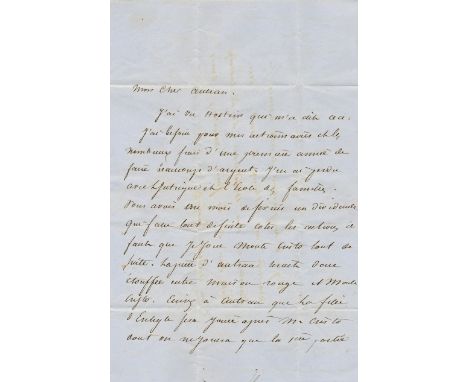 Mon cher Autran.
J'ai vu Hostein qui m'a dit ceci
J'ai besoin pour mes actionnaires et le
nombreux frais d'une première année de
faire beaucoup d'argent. J'en ai perdu
avec Intrigue et l'école des familles.
Nous avons un mois de forcés un dividende
que faut tout de suite
faut que je joue Monte Cristo tout de
suite. La pièce d'Autran serait donc
étouffée entre maison rouge et Monte
Cristo. Ecrivez à Autran que la fille
d'Eschyle sera jouée après Mte Cristo
dont on ne jouera que la 1ère partie